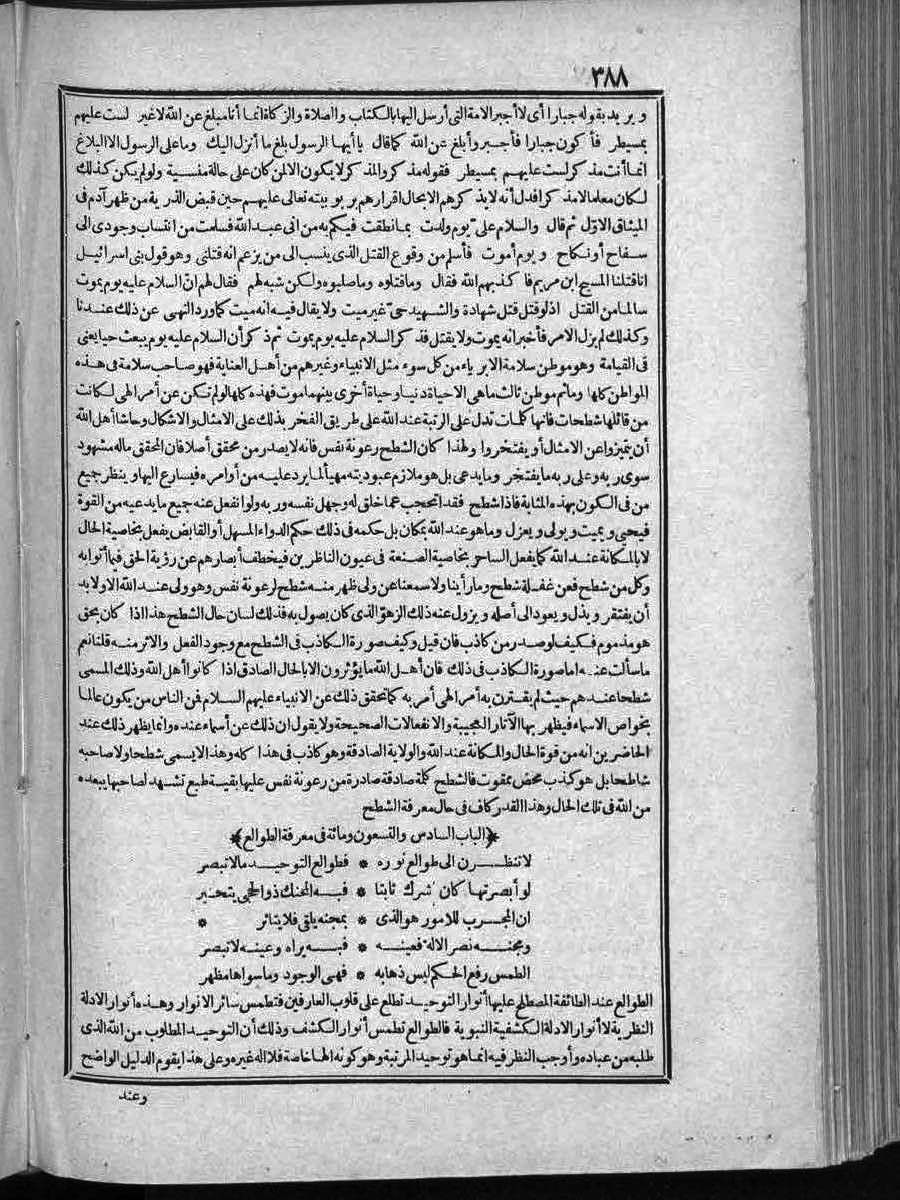 ٣٨٨
ويريد بقوله جبارا أى لا أجبر الامة التى أرسل اليها بالكتاب والصلاة والزكاة انما أنا مبلغ عن الله لا غير لست عليهم
بمسيطر فأكون جبارا فأجبر وأبلغ عن الله كما قال يا أيها الرسول بلغ ما أنزل اليك وما على الرسول الا البلاغ
انما أنت مذكر لست عليهم بمسيطر فقوله مذكر والمذكر لا يكون الا لمن كان على حالة منسية ولو لم يكن كذلك
لكان معلما لا مذكرا فدل أنه لا يذكرهم الا بحال اقرارهم بربوبيته تعالى عليهم حين قبض الذرية من ظهر آدم فى
الميثاق الاوّل ثم قال والسلام علىّ يوم ولدت بما نطقت فيكم به من انى عبد الله فسلمت من انتساب وجودى الى
سفاح أو نكاح ويوم أموت فأسلم من وقوع القتل الذى ينسب الى من يزعم انه قتلنى وهو قول بنى اسرائيل
انا قتلنا المسيح ابن مريم فأكذبهم الله فقال وما قتلوه وما صلبوه ولكن شبه لهم فقال لهم ان السلام عليه يوم يموت
سالما من القتل اذ لو قتل قتل شهادة والشهيد حىّ غير ميت ولا يقال فيه انه ميت كما ورد النهى عن ذلك عندنا
وكذلك لم يزل الامر فأخبر انه يموت ولا يقتل فذكر السلام عليه يوم يموت ثم ذكر أن السلام عليه يوم يبعث حيا يعنى
فى القيامة وهو موطن سلامة الابرياء من كل سوء مثل الانبياء وغيرهم من أهل العناية فهو صاحب سلامة فى هذه
المواطن كلها وما ثم موطن ثالث ما هى الا حياة دنيا وحياة أخرى بينهما موت فهذه كلها لو لم تكن عن أمر الهى لكانت
من قائلها شطحات فانها كلمات تدل على الرتبة عند الله على طريق الفخر بذلك على الامثال والاشكال وحاشا أهل الله
أن يتميزوا عن الامثال أو يفتخروا ولهذا كان الشطح رعونة نفس فانه لا يصدر من محقق أصلا فان المحقق ماله مشهود
سوى ربه وعلى ربه ما يفتخر وما يدعى بل هو ملازم عبوديته مهيأ لما يرد عليه من أوامره فيسارع اليها وينظر جميع
من فى الكون بهذه المثابة فاذا شطح فقد انحجب عما خلق له وجهل نفسه وربه ولو انفعل عنه جميع ما يدعيه من القوة
فيحيى ويميت ويولى ويعزل وما هو عند الله بمكان بل حكمه فى ذلك حكم الدواء المسهل أو القابض يفعل بخاصية الحال
لا بالمكانة عند الله كما يفعل الساحر بخاصية الصنعة فى عيون الناظرين فيخطف أبصارهم عن رؤية الحق فيما أتوا به
وكل من شطح فعن غفلة شطح وما رأينا ولا سمعنا عن ولى ظهر منه شطح لرعونة نفس وهو ولى عند الله الا ولا بد
أن يفتقر ويذل ويعود الى أصله ويزول عنه ذلك الزهو الذى كان يصول به فذلك لسان حال الشطح هذا اذا كان بحق
هو مذموم فكيف لو صدر من كاذب فان قيل وكيف صورة الكاذب فى الشطح مع وجود الفعل والاثر منه قلنا نعم
ما سألت عنه اما صورة الكاذب فى ذلك فان أهل الله ما يؤثرون الا بالحال الصادق اذا كانوا أهل الله وذلك المسمى
شطحا عندهم حيث لم يقترن به أمر الهى أمر به كما تحقق ذلك عن الانبياء عليهم السلام فمن الناس من يكون عالما
بخواص الاسماء فيظهر بها الآثار العجيبة والانفعالات الصحيحة ولا يقول ان ذلك عن أسماء عنده وانما يظهر ذلك عند
الحاضرين انه من قوة الحال والمكانة عند الله والولاية الصادقة وهو كاذب فى هذا كله وهذا لا يسمى شطحا ولا صاحبه
شاطحا بل هو كذب محض ممقوت فالشطح كلمة صادقة صادرة من رعونة نفس عليها بقية طبع تشهد لصاحبها ببعده
من الله فى تلك الحال وهذا القدر كاف فى حال معرفة الشطح
﴿الباب السادس والتسعون ومائة فى معرفة الطوالع﴾
لا تنظرن الى طوالع نوره * فطوالع التوحيد ما لا تبصر
لو أبصرتها كان شرك ثابتا * فيه المحنك ذو الحجى يتحير
ان المجرب للامور هو الذى * بمجنه يلقى فلا يتاثر *
ومجنه نصر الاله فعينه * فبه يراه وعينه لا تبصر
الطمس رفع الحكم ليس ذهابه * فهى الوجود وما سواها مظهر
الطوالع عند الطائفة المصطلح عليها أنوار التوحيد تطلع على قلوب العارفين فتطمس سائر الانوار وهذه أنوار الادلة
النظرية لا أنوار الادلة الكشفية النبوية فالطوالع تطمس أنوار الكشف وذلك أن التوحيد المطلوب من الله الذى
طلبه من عباده وأوجب النظر فيه انما هو توحيد المرتبة وهو كونه الها خاصة فلا اله غيره وعلى هذا يقوم الدليل الواضح
وعند